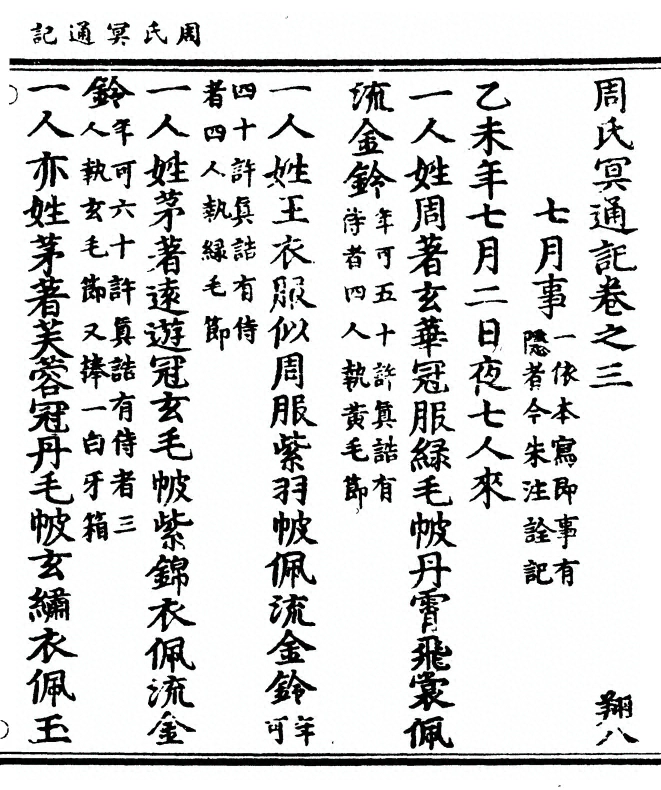 周氏冥通記
周氏冥通記卷之三
翔八
七月事一依本寫即事有隱者今朱注詮記
乙未年七月二日夜七人來
一人姓周著玄華冠服綠毛帔丹霄飛裳佩
流金鈴年可五十許眞誥有侍者四人執黃毛節
一人姓王衣服似周服紫羽帔佩流金鈴年可
四十許眞誥有侍者四人執綠毛節
一人姓茅著遠遊冠玄毛帔紫錦衣佩流金
鈴年可六十許眞誥有侍者三人執玄毛節又捧一白牙箱
一人亦姓茅著芙蓉冠丹毛帔玄繡衣佩玉